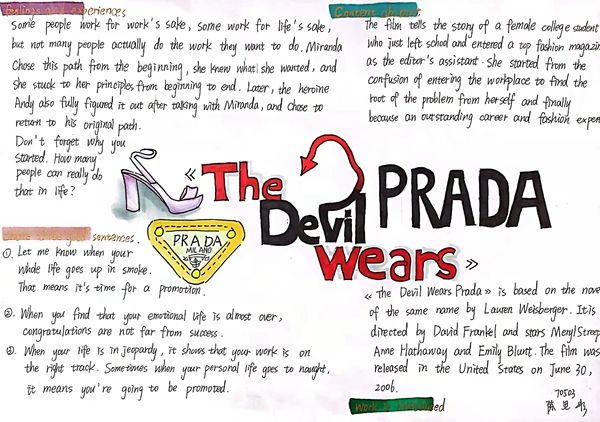 feelings and experiences
Some people work for work's sake, some work for life's sake,
but not many people actually do the work they want to do. Miranda
Chose this path from the beginning, she knew what she wanted, and
she stuck to her principles from beginning to end. Later, the heroine
Andy also fully figured it out after talking with Miranda, and chose to
return to his original path.
Don't forget why you
started. How many
people can really do
that in life?
The film tells the story of a female college student
who just left school and entered a top fashion magazin
as the editor's assistant. She started from the
confusion of entering the workplace to find the
root of the problem from herself and finally
because an outstanding career and fashion exper
《The
Devil
Wears》
PRADA
PRADA
MILANO
sentences.
①. Let me know when your
whole life goes up in smoke.
That means it's time for a promotion.
②. When you find that your emotional life is almost over,
congratulations are not far from success.
③. When your life is in jeopardy, it shows that your work is on
the right track. Sometimes when your personal life goes to naught,
it means you're going to be promoted.
《The Devil Wears Prada》 is based on the nove
of the same name by Lauren Weisberger. It is
directed by David Frankel and stars Meryl Streep
Anne Hathaway and Emily Blunt. The film was
released in the United States on June 30,
2006.
70503
陈思